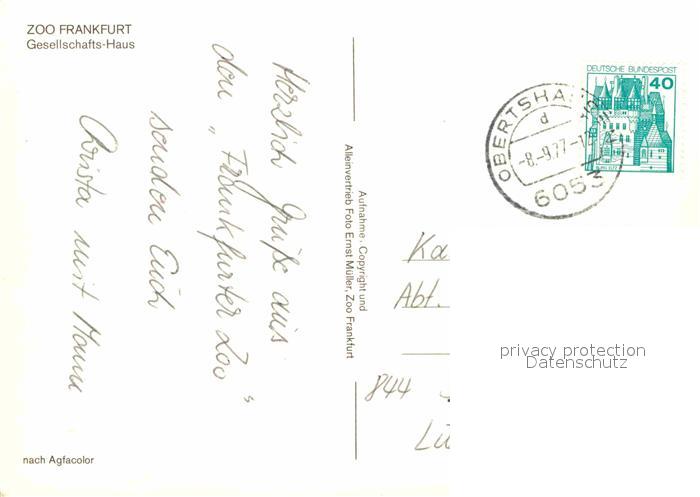 ZOO FRANKFURT
Gesellschafts-Haus
Herzlich Grüße aus
den „Frankfurter Zoo“
senden Euch
Christa mit Mann
Aufnahme, Copyright und
Alleinvertrieb Foto Ernst Müller, Zoo Frankfurt
nach Agfacolor
DEUTSCHE BUNDESPOST
40
OBERTSHA
d
-8.-9.77-1
6053
Ka
Abt.
844
Lü
privacy protection
Datenschutz